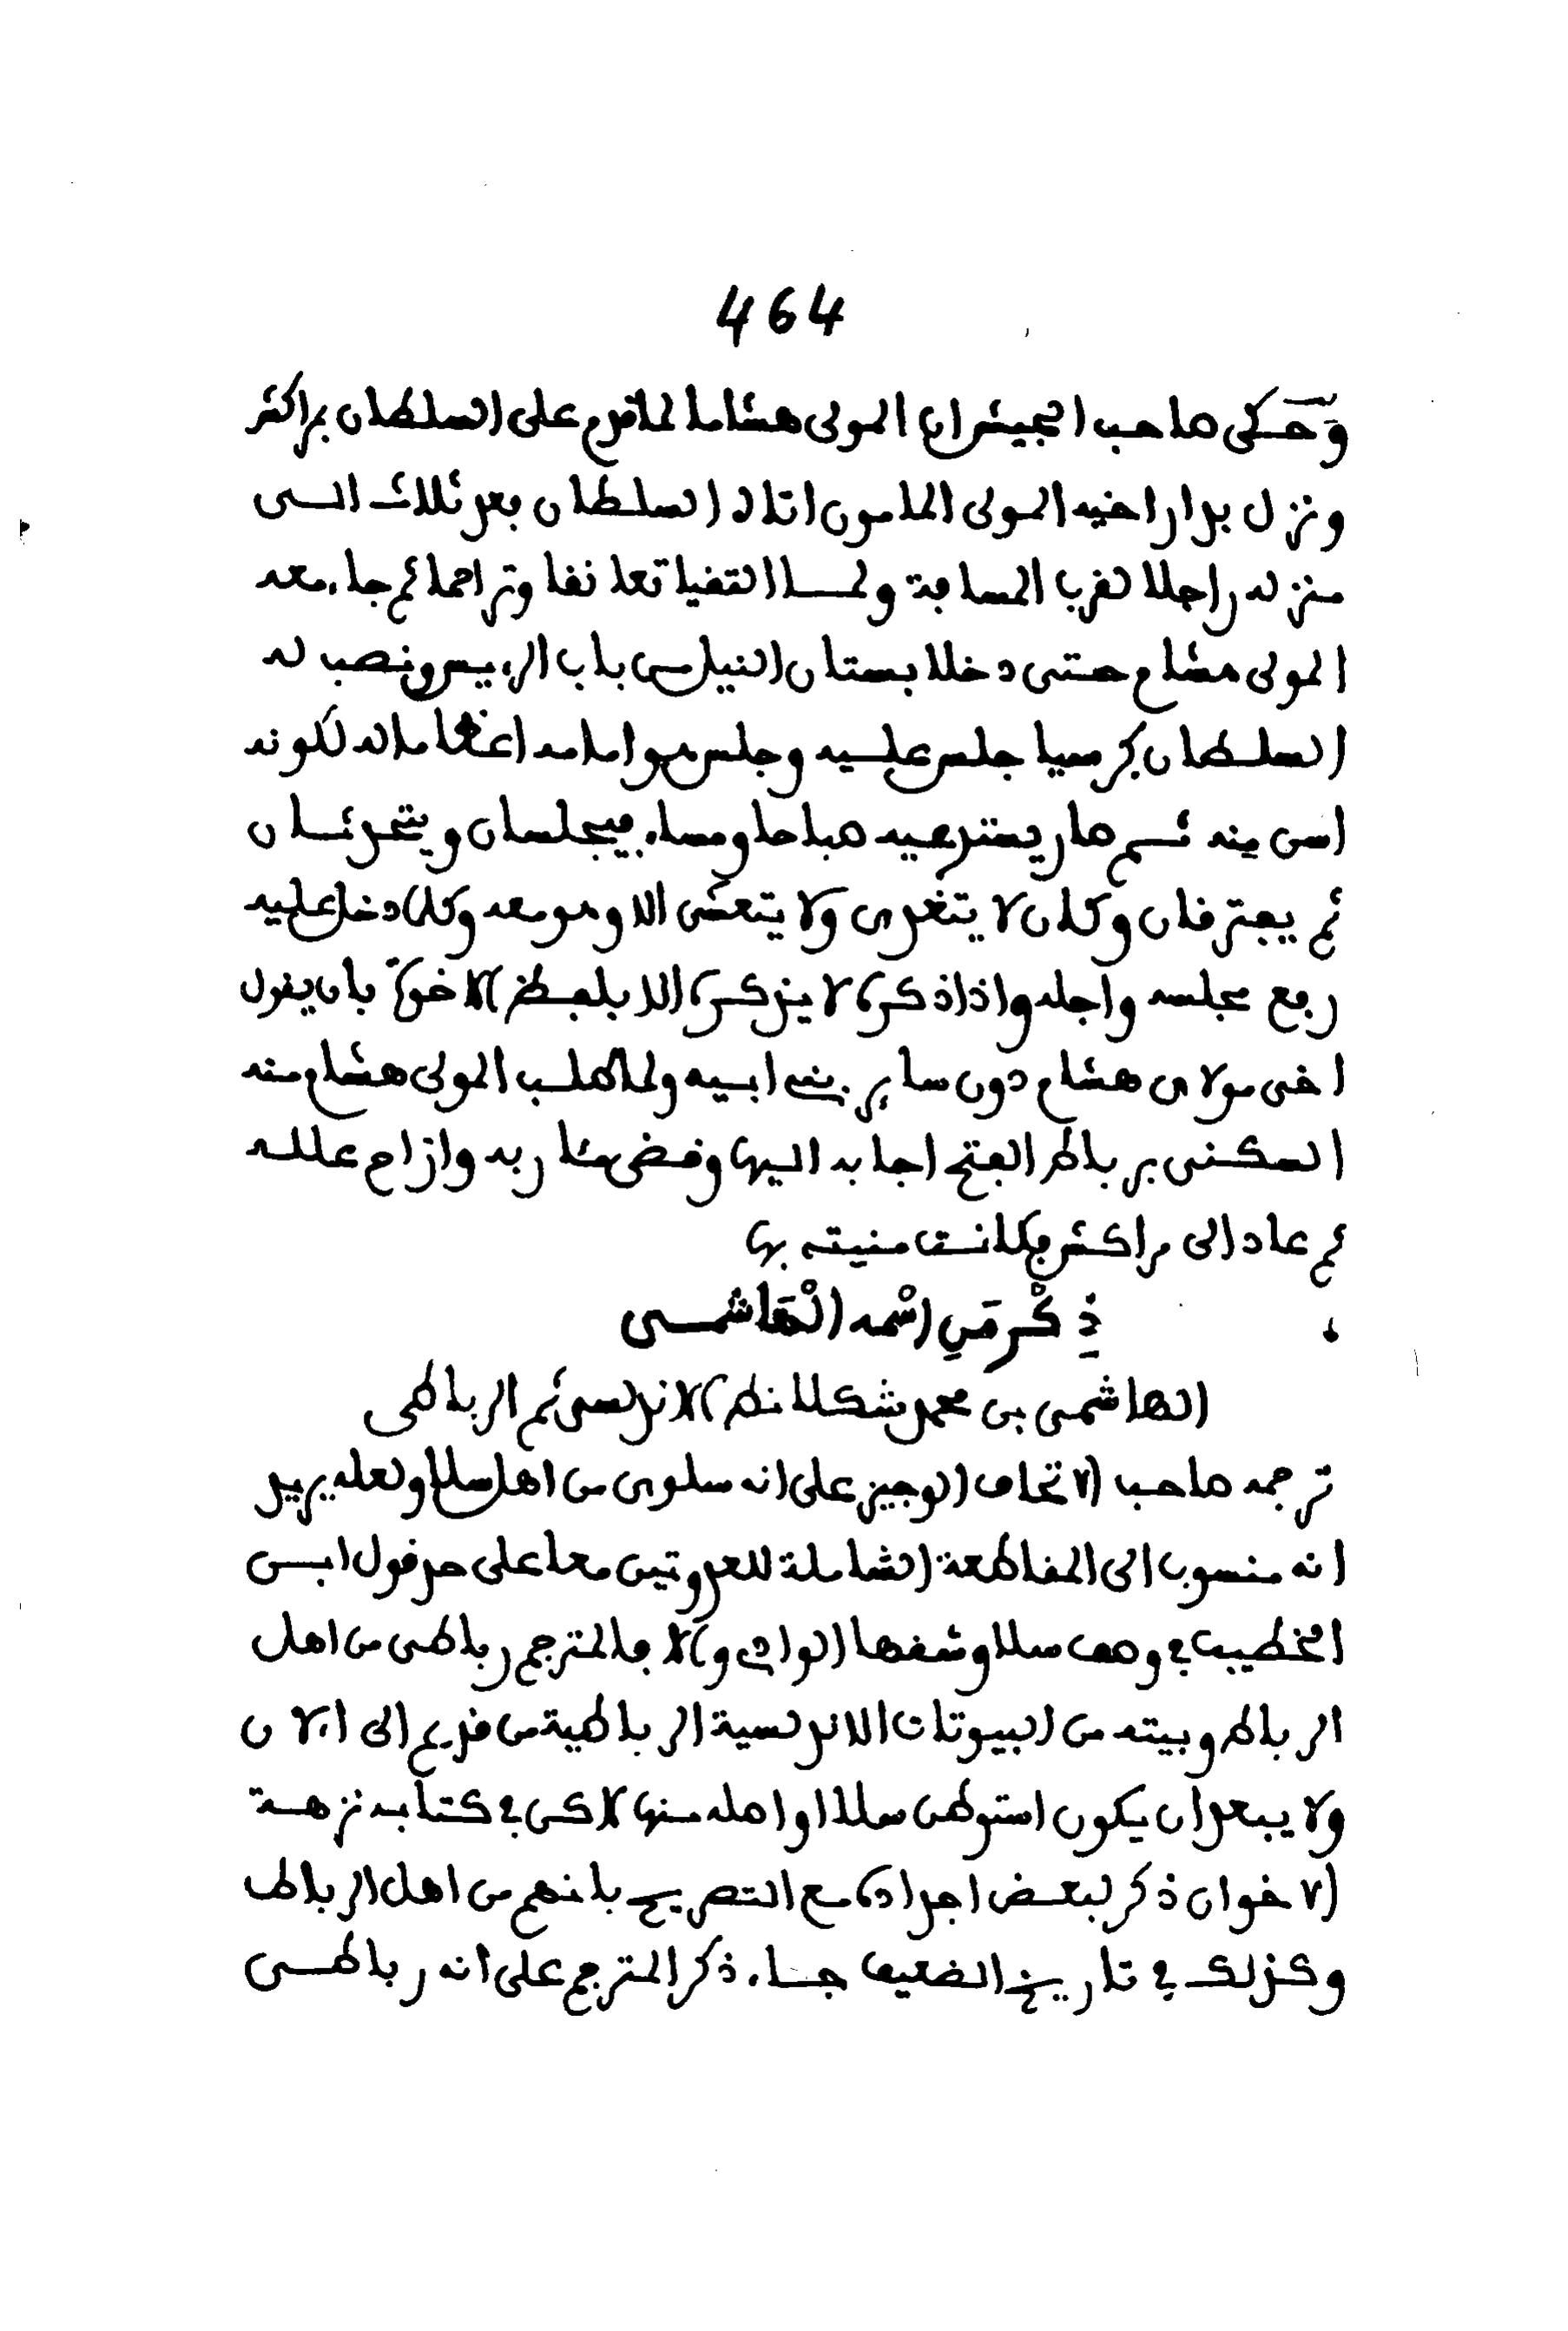 464
وحكى صاحب الجيش ان المولى هشاما لما قدم على السلطان بمراكش
ونزل بدار اخيه المولى المامون اتاه السلطان بعد ثلاث الى
منزله راجلا لقرب المسافة ولما التقيا تعانقا وتراحما ثم جاء معه
المولى هشام حتى دخلا بستان النيل من باب الرييس ونصب له
السلطان كرسيا جلس عليه وجلس هو امامه اعظاما له لكونه
اسن منه ثم صار يستدعيه صباحا ومساء فيجلسان ويتحدثان
ثم يفترقان وكان لا يتغدى ولا يتعشى الا وهو معه وكلما دخل عليه
رفع مجلسه واجله واذا ذكره لا يذكره الا بلفظ الاخوة بان يقول
اخى مولاى هشام دون ساير بنى ابيه ولما طلب المولى هشام منه
السكنى برباط الفتح اجابه اليها وقضى مئاربه وازاح علله
ثم عاد الى مراكش فكانت منيته بها
ذِكْر مَن اسْمه الْهَاشمى
الهاشمى بن محمد شكلانط الاندلسى ثم الرباطى
ترجمه صاحب الاتحاف الوجيز على انه سلوى من اهل سلا ولعله يريد
انه منسوب الى المقاطعة الشاملة للعدوتين معا على حد قول ابن
الخطيب في وصف سلا وشقها الواد والا فالمترجم رباطى من اهل
الرباط وبيته من البيوتات الاندلسية الرباطية من قديم الى الان
ولا يبعد ان يكون استوطن سلا او اهله منها لاكن في كتابه نزهة
الاخوان ذكر لبعض اجداده مع التصريح بانهم من اهل الرباط
وكذلك في تاريخ الضعيف جاء ذكر المترجم على انه رباطى